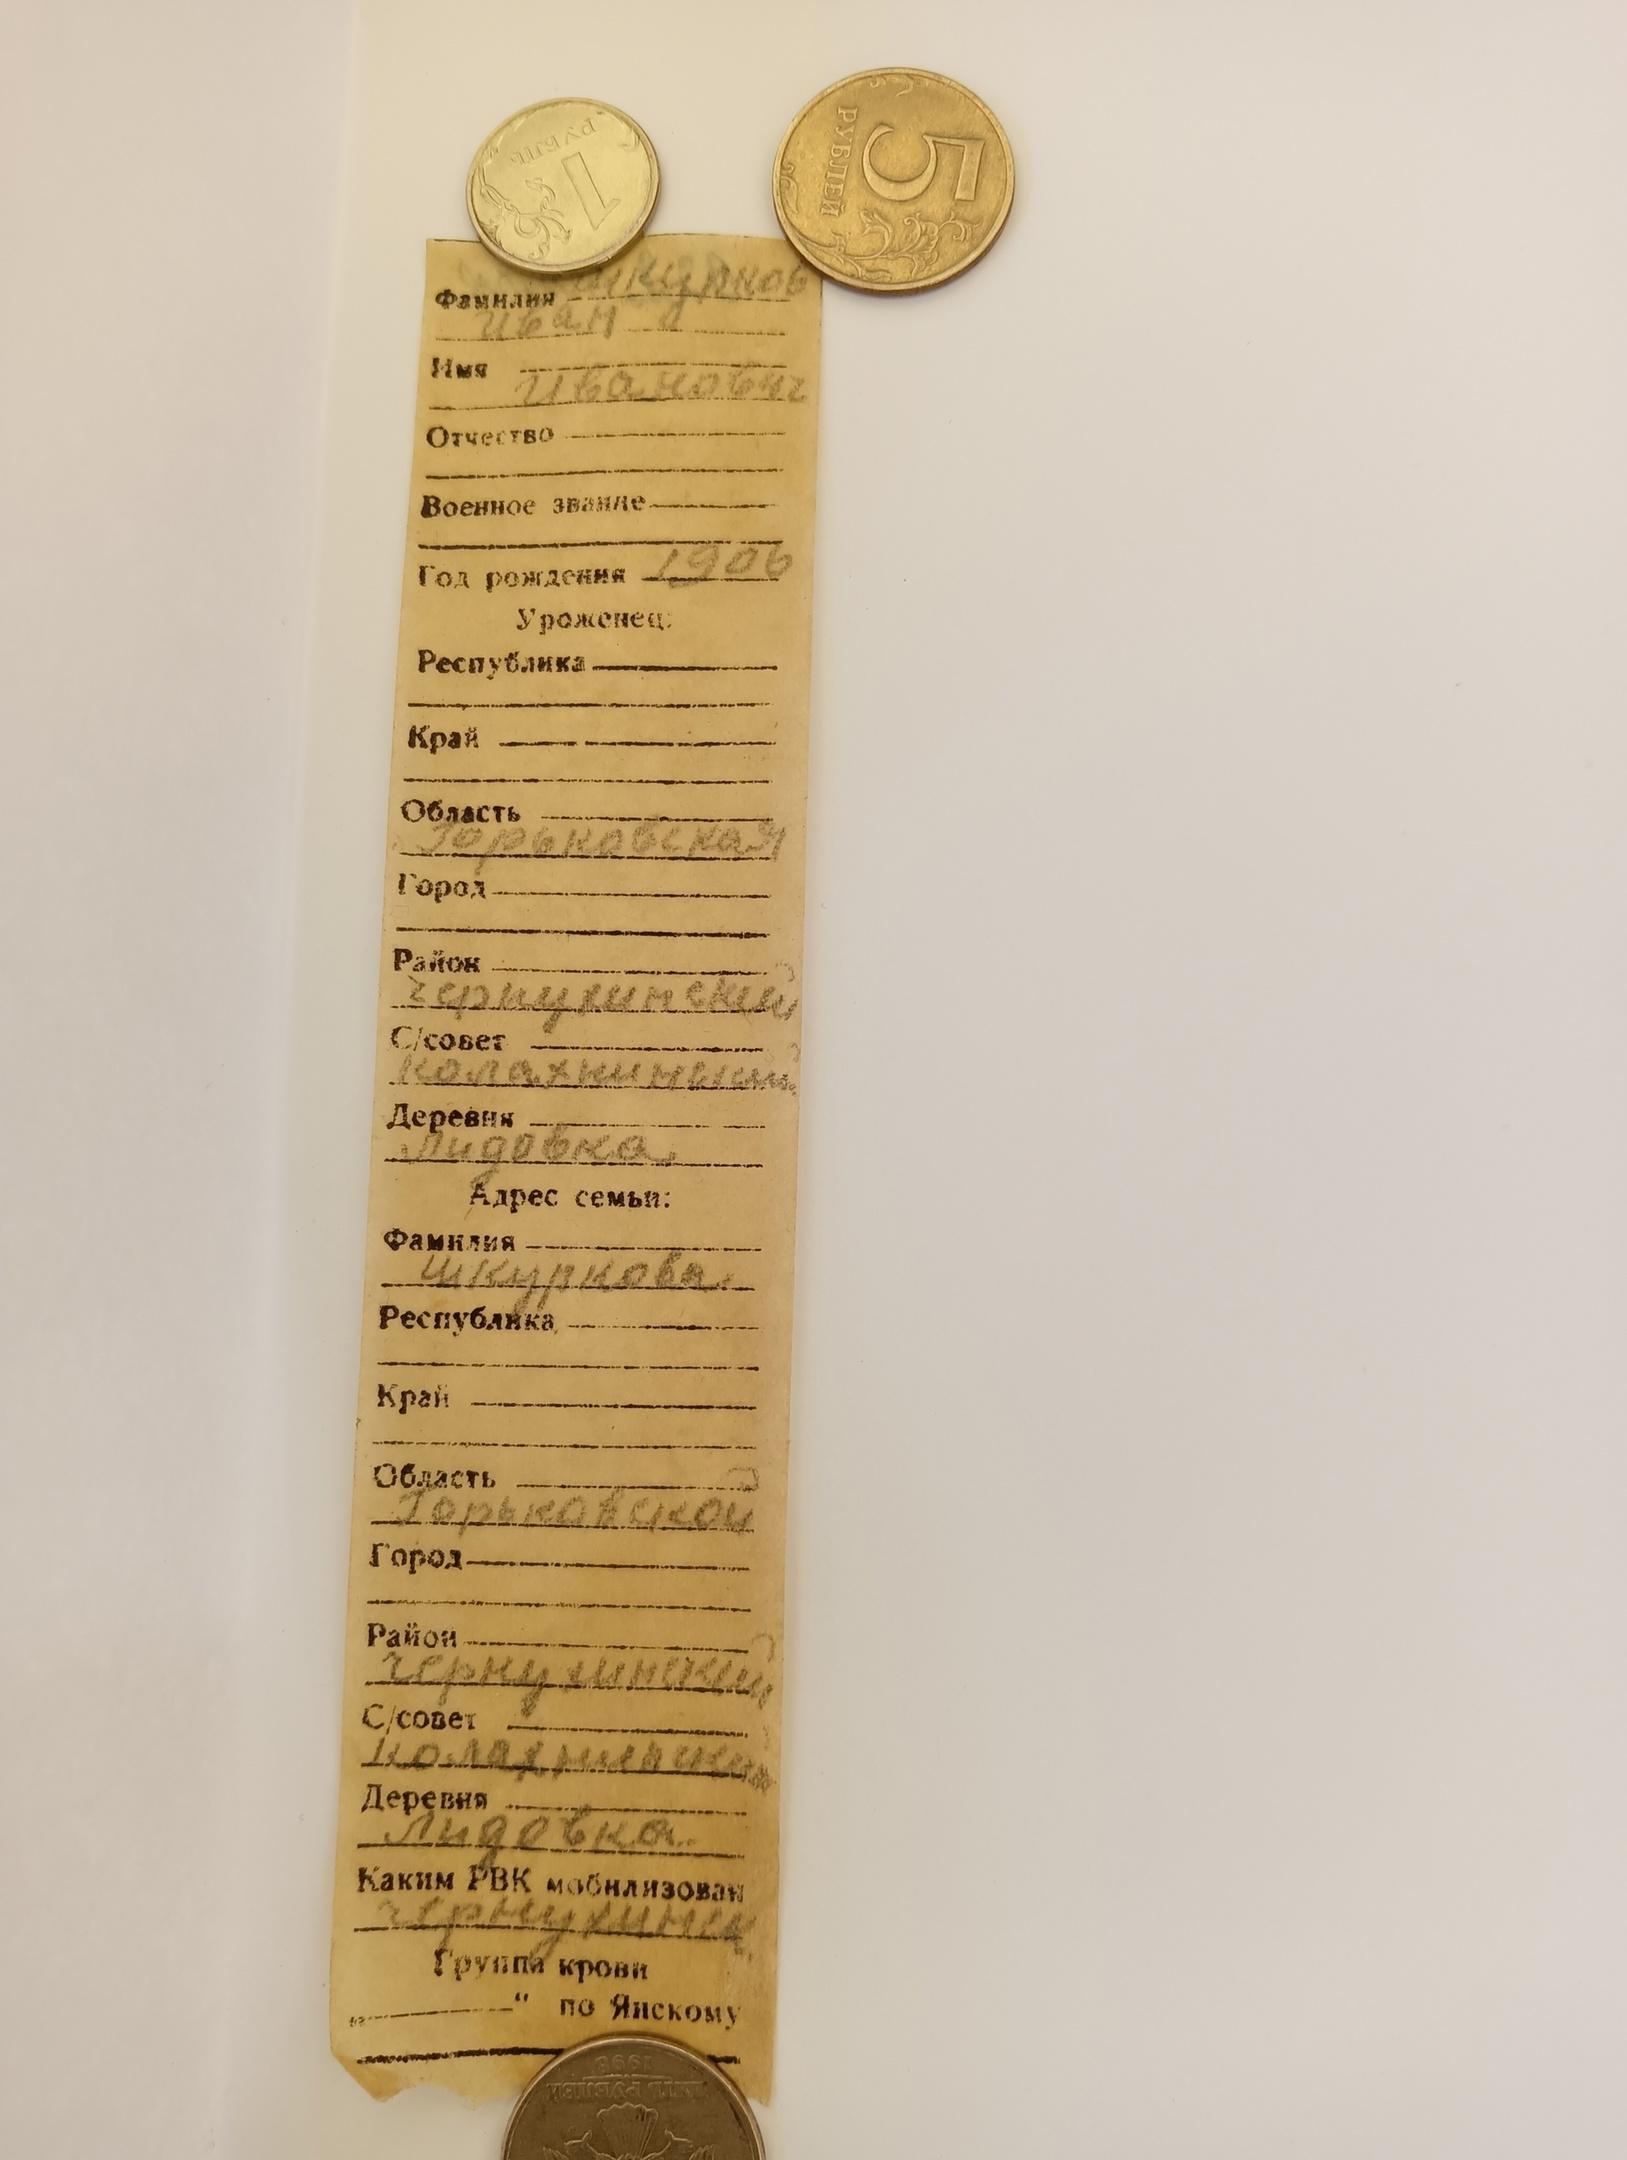 1
РУБЛЬ
5
РУБЛЕЙ
Фамилия Шкурнов
Иван
Имя
Иванович
Отчество
Военное звание
Год рождения 1906
Уроженец:
Республика
Край
Область
Горьковская
Город
Район
Чернухинский
С/совет
Деревня
Лидовка
Адрес семьи:
Фамилия
Шкурнова
Республика
Край
Область
Горьковской
Город
Район
Чернухинский
С/совет
Деревня
Лидовка
Каким РВК мобилизован
Чернухинск
Группа крови
„ “ по Янскому
ПЯТЬ РУБЛЕЙ
1998